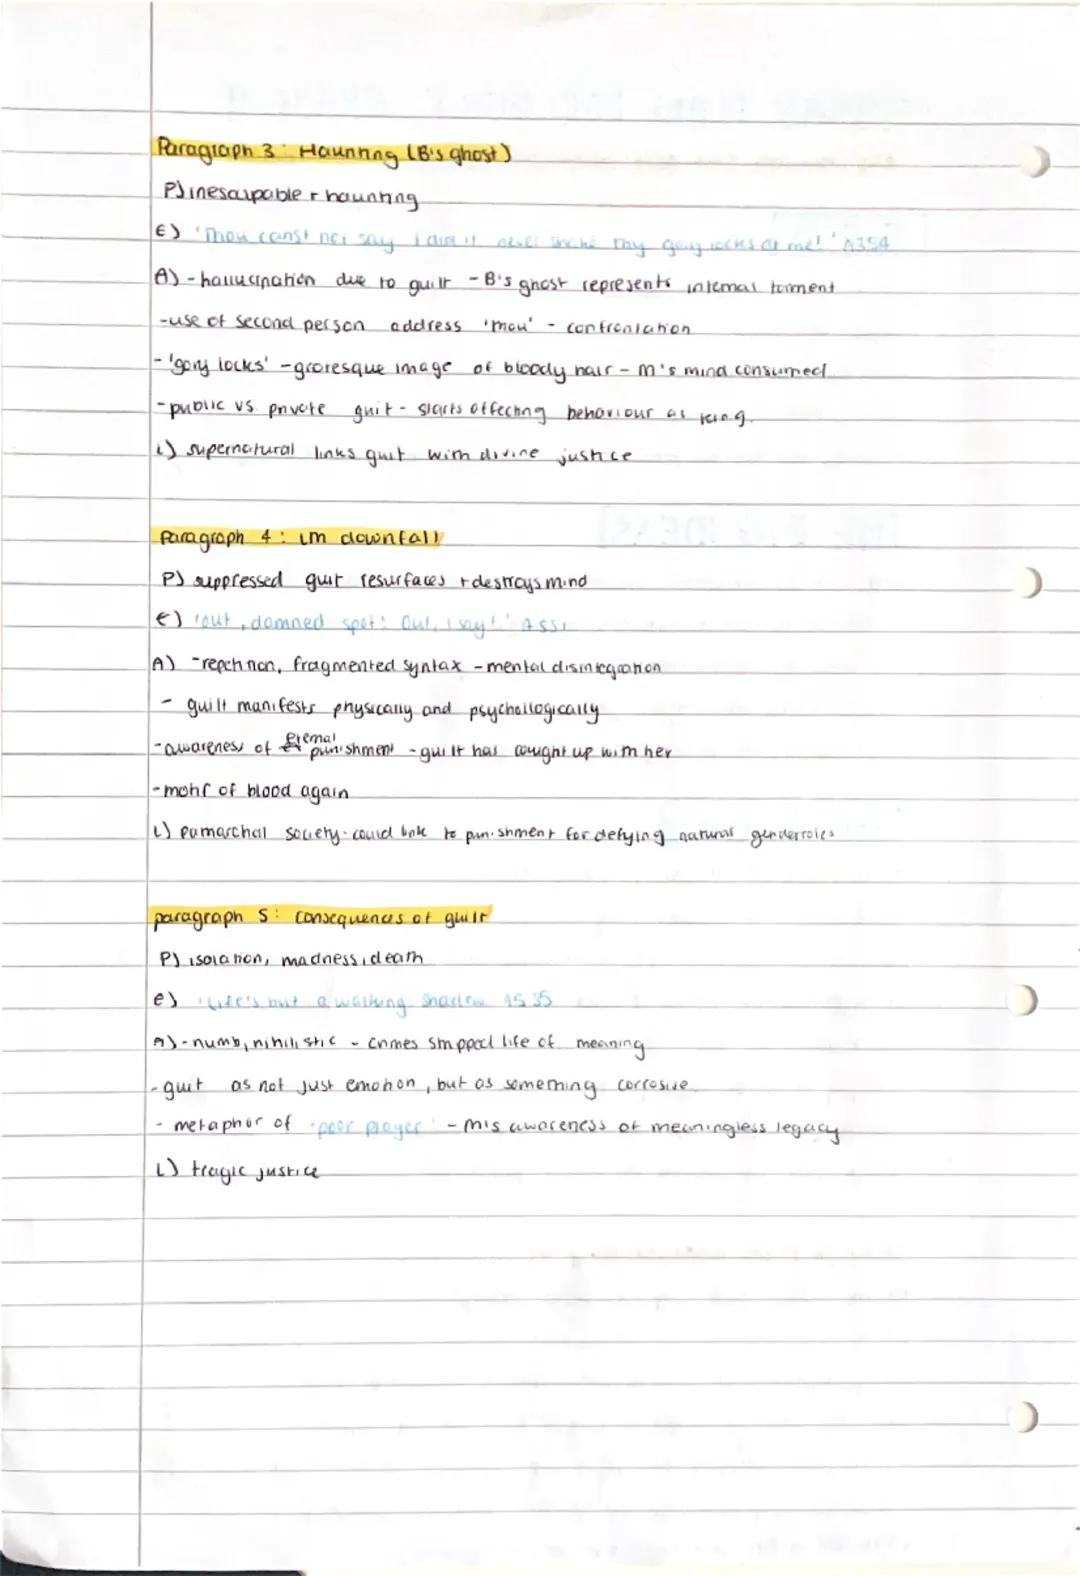 Paragraph 3: Haunting (B's ghost)
P) inescapable + haunting
E) 'Thou canst not say I did it never shake thy gory locks at me!' A3S4
A) - hallucination due to guilt - B's ghost represents internal torment
- use of second person address 'thou' - confrontation
- 'gory locks' - grotesque image of bloody hair - M's mind consumed
- public vs. private guilt - starts affecting behaviour as king.
L) supernatural links guilt with divine justice
Paragraph 4: LM downfall
P) suppressed guilt resurfaces + destroys mind
E) 'out, damned spot! Out, I say!' A5S1
A) - repetition, fragmented syntax - mental disintegration
- guilt manifests physically and psychollogically
- awareness of eternal punishment - guilt has caught up with her
- motif of blood again
L) patriarchal society - could link to punishment for defying natural gender roles
paragraph 5: consequences of guilt
P) isolation, madness, death
e) 'Life's but a walking shadow A5 S5
A) - numb, nihilistic - crimes stripped life of meaning
- guilt as not just emotion, but as something corrosive
- metaphor of 'poor player' - M's awareness of meaningless legacy
L) tragic justice